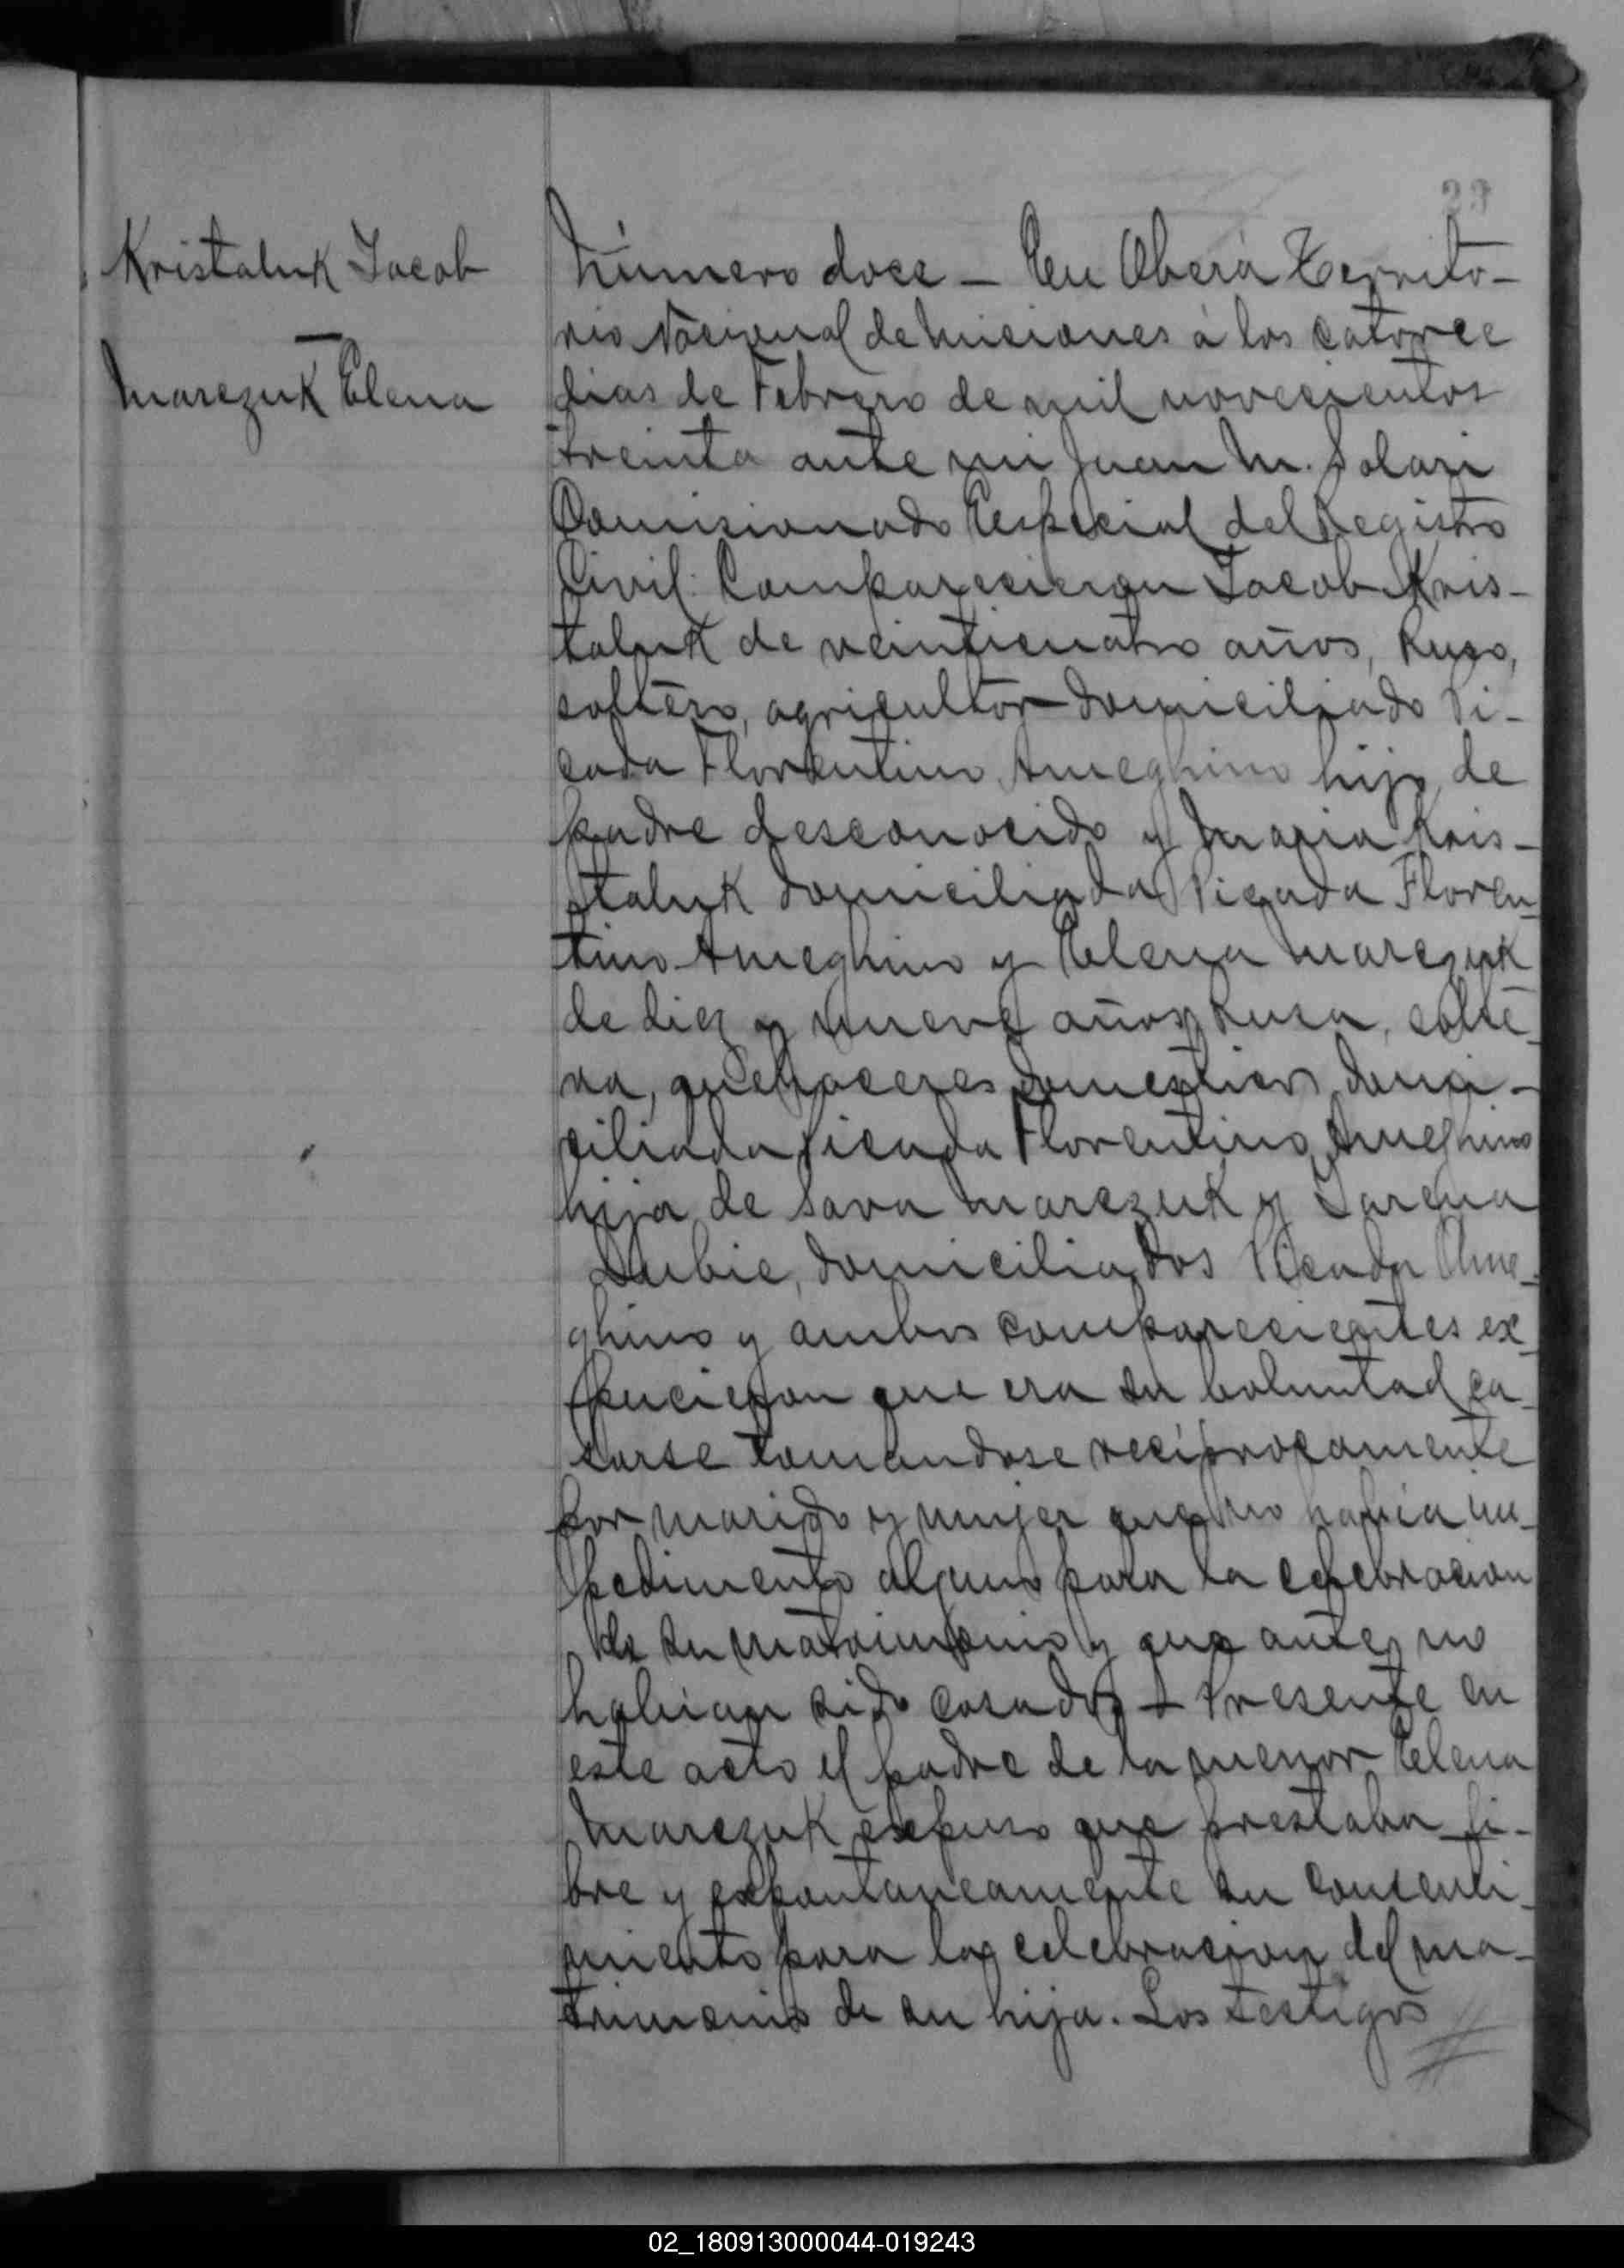 23
Kristaluk Jacob
—
Marczuk Elena
Número doce — En Oberá Territo-
rio Nacional de Miciones á los catorce
dias de Febrero de mil novecientos
treinta ante mi Juan M. Solari
Comisionado Especial del Registro
Civil: Comparecieron Jacob Kris-
taluk de veinticuatro años, Ruso,
soltero, agricultor domiciliado Pi-
cada Florentino Ameghino hijo de
padre desconocido y Maria Kris-
taluk domiciliada Picada Floren-
tino Ameghino y Elena Marczuk
de diez y nueve años, Rusa, solte-
ra, quehaceres domesticos, domi-
ciliada Picada Florentino Ameghino
hija de Sava Marczuk y
domiciliados Picada Ame-
ghino y ambos comparecientes ex-
pucieron que era su boluntad ca-
sarse tomandose reciprocamente
por marido y mujer que no habia im-
pedimento alguno para la celebracion
de su matrimonio y que antes no
habian sido casados — Presente en
este acto el padre de la menor Elena
Marczuk expuso que prestaba li-
bre y expontaneamente su consenti-
miento para la celebracion del ma-
trimonio de su hija. Los testigos
02_180913000044-019243